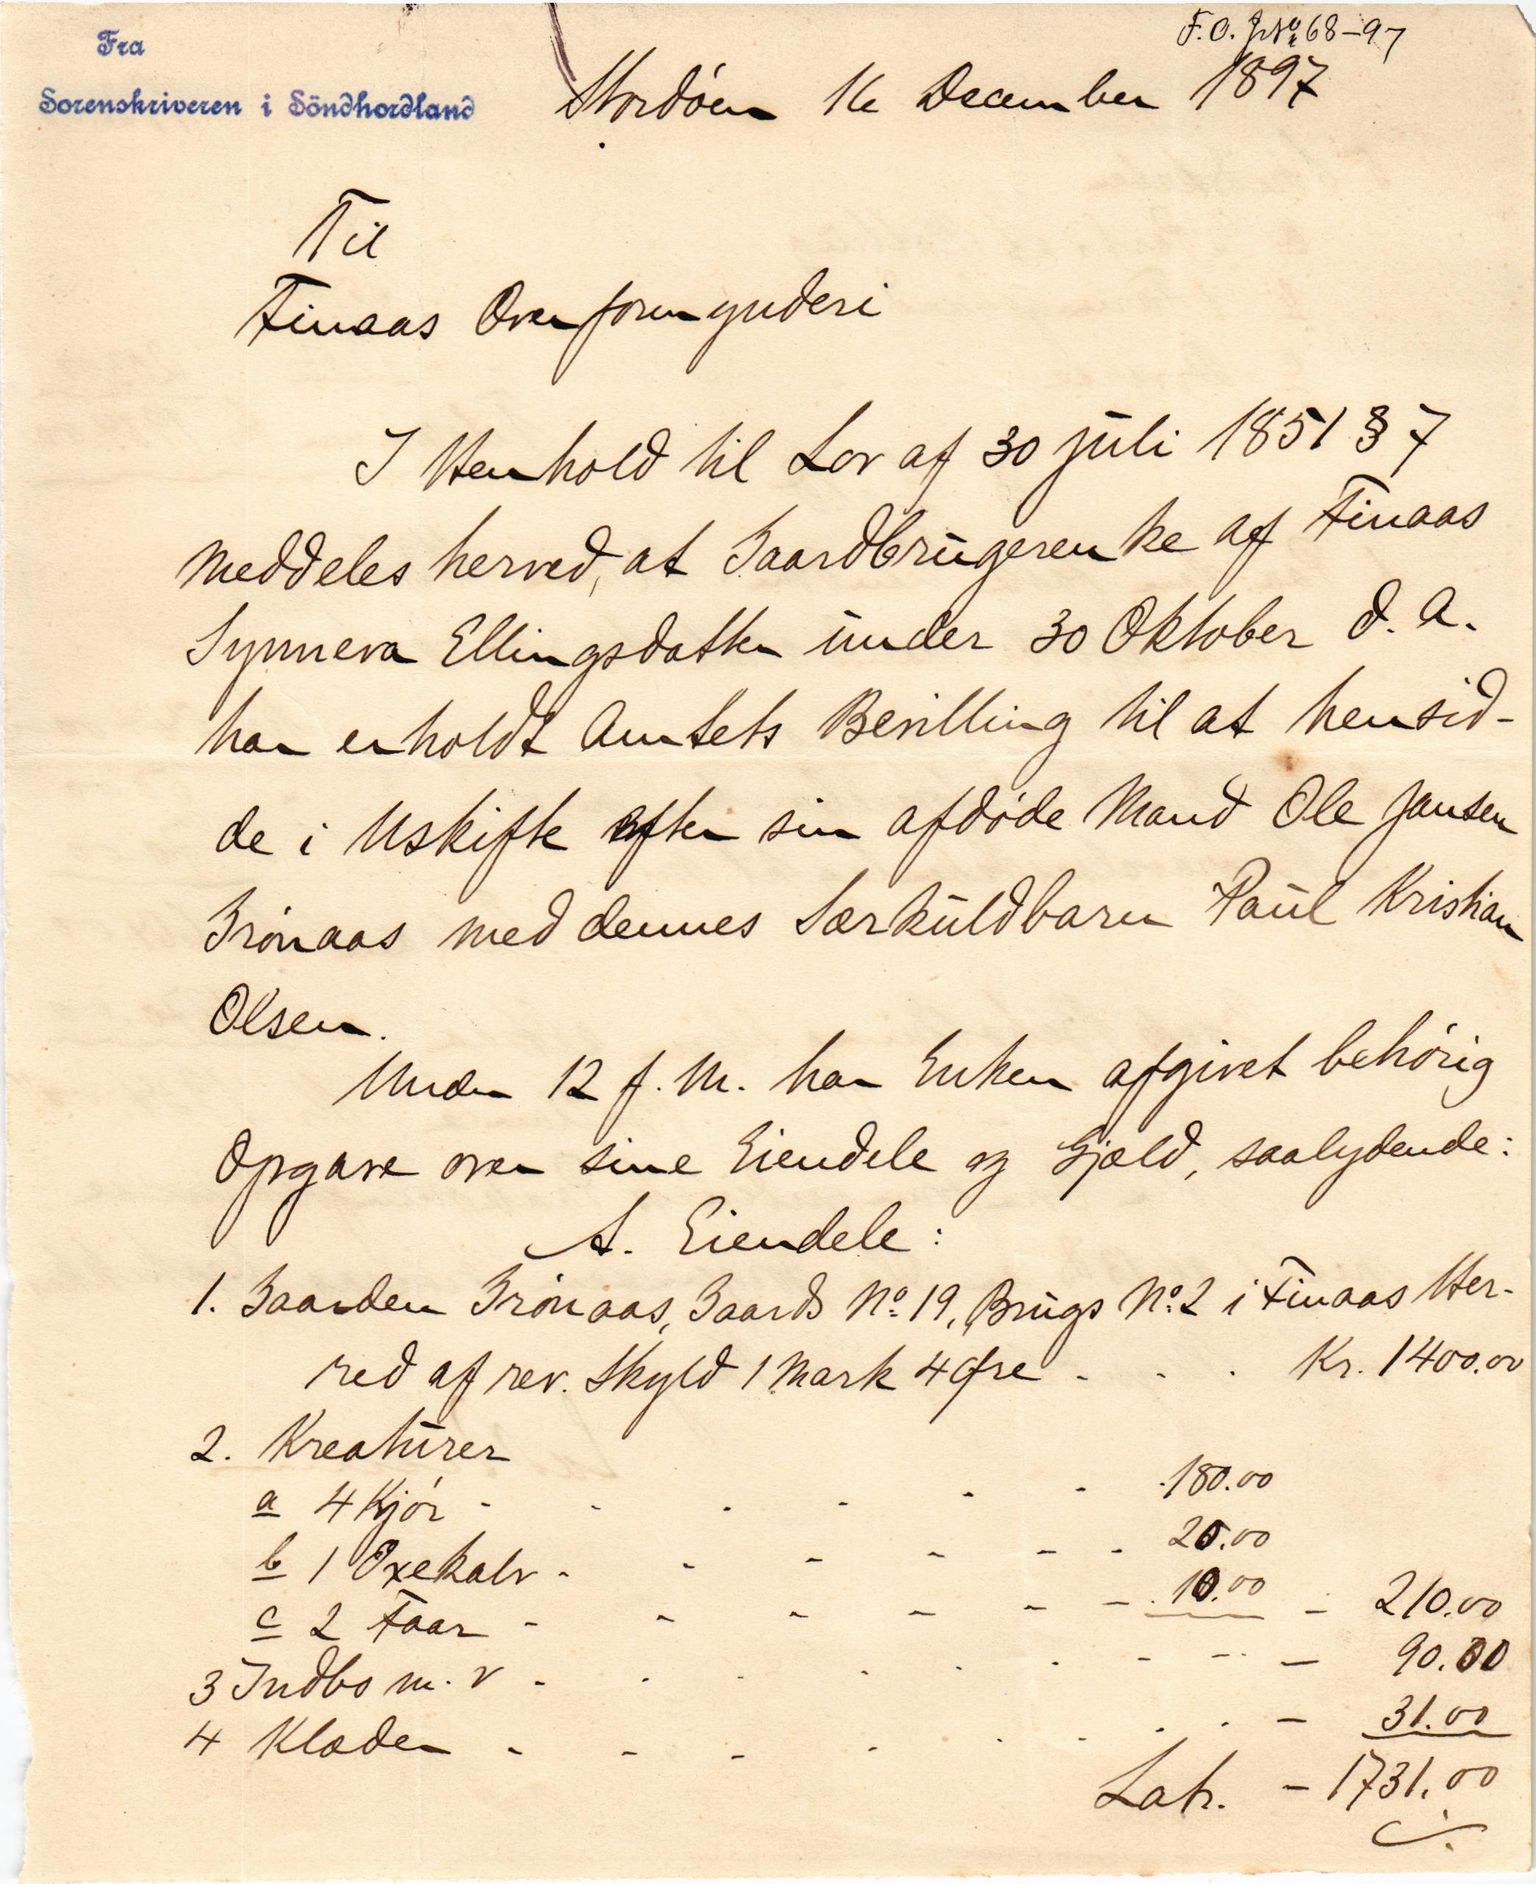 F. O. J.No. 68-97
Fra
Sorenskriveren i Söndhordland
Stordöen 16 December 1897
Til
Finaas Overformynderi
I Henhold til Lov af 30 juli 1851 § 7
meddeles herved, at Gaardbrugerenke af Finaas
Synneva Ellingsdatter under 30 Oktober d. A.
har erholdt Amtets Bevilling til at hensid-
de i Uskifte efter sin afdøde Mand Ole Jansen
Grønaas med dennes Særkuldbarn Paul Kristian
Olsen.
Under 12 f. M. har Enken afgivet behørig
Opgave over sine Eiendele og Gjæld, saalydende:
A. Eiendele:
1. Gaarden Grønaas, Gaards No. 19, Brugs No. 2 i Finaas Her-
red af rev. Skyld 1 Mark 4 Øre - - - Kr. 1400.00
2. Kreaturer
a 4 Kjør - - - - - - 180.00
b 1 Oxekalv - - - - - - 20.00
c 2 Faar - - - - - - 10.00 - 210.00
3 Indbo m. v - - - - - - - 90.00
4 Klæder - - - - - - - 31.00
Latr. - 1731.00